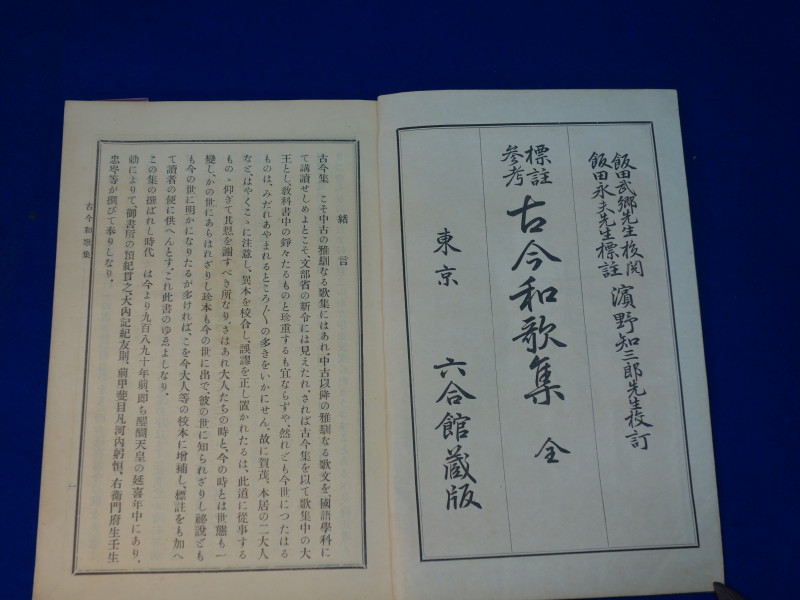 飯田武郷先生校閲
飯田永夫先生標註
濱野知三郎先生校訂
標註
参考
古今和歌集 全
東京 六合館蔵版
緒言
古今集 こそ中古の雅馴なる歌集にはあれ、中古以降の雅馴なる歌文を、國語學科に
て講讀せしめよとこそ、文部省の新令には見えたれ、されば古今集を以て歌集中の大
王とし、教科書中の錚々たるものと珍重するも宜ならずや、然れども今世につたはる
ものは、みだれあやまれるところ〲の多きをいかにせん、故に賀茂、本居の二大人
など、はやくこゝに注意し、異本を校合し、誤謬を正し置かれたるは、此道に從事する
もの、仰ぎて其恩を謝すべき所なり、さはあれ大人たちの時と、今の時とは世態も一
變し、かの世にあらはれざりし珍本も今の世に出で、彼の世に知られざりし祕說ども
も今の世に明かになりたるが多ければ、こを今大人等の校本に增補し、標註をも加へ
て讀者の便に供へんとす、これ此書のゆゑよしなり、
この集の撰ばれし時代 は今より九百八九十年前、即ち醍醐天皇の延喜年中にあり、
勅によりて、御書所の預紀貫之、大內記紀友則、前甲斐目凡河內躬恒、右衞門府生壬生
忠岑等が撰びて奉りしなり、
古今和歌集
一